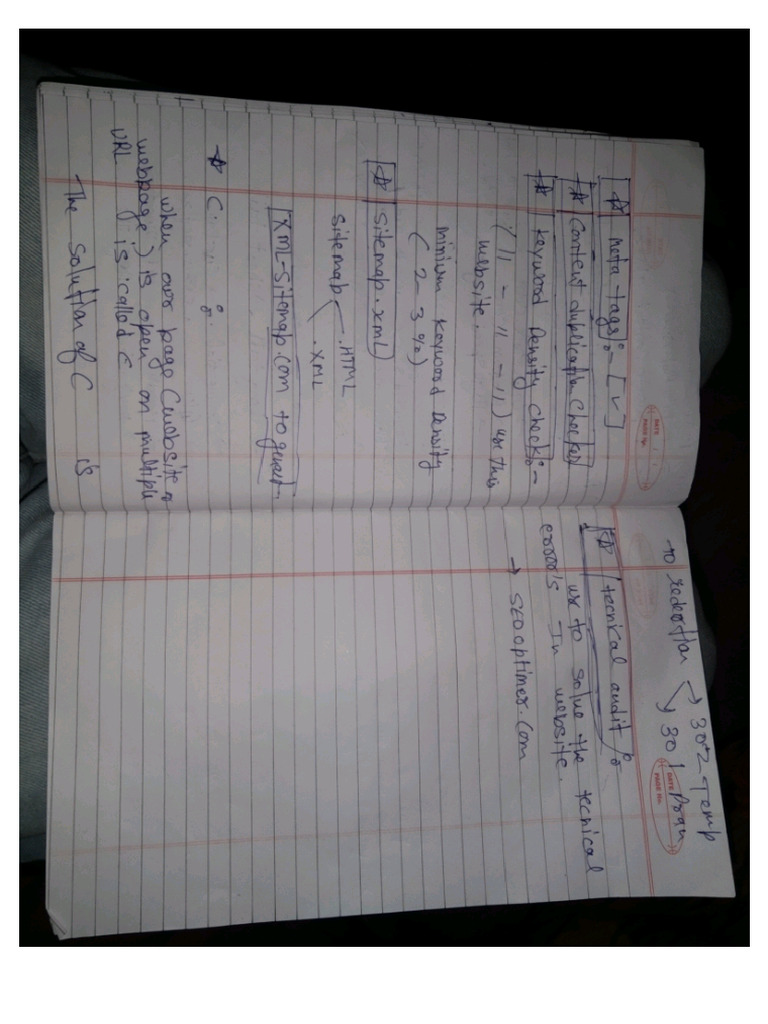 ☆ Meta tags :- [✓]
☆ Content duplication Checker
☆ Keyword Density Check :-
(11 - 11 - 11) use this
website.
minium keyword Density
(2 - 3%)
☆ Sitemap.xml
Sitemap .HTML
.XML
XML-Sitemap.com to
☆ C. . . . :
when our page (website
webpage) is open on multiple
URL is called C
The Solution of C is
DATE
PAGE No.
→ 302 Temp
to
→ 301
DATE
PAGE No.
☆ tecnical audit :-
use to solve the tecnical
error's In website.
→ SEOoptimer.com